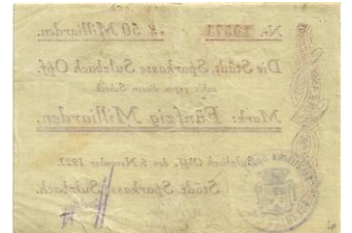 Nr. 19571 ... M. 50 Milliarden.
Die Städt. Sparkasse Sulzbach Opf.
zahle gegen diesen Scheck
Mark: Fünfzig Milliarden.
Sulzbach Opf., den 5. November 1923.
Städt. Sparkasse Sulzbach.